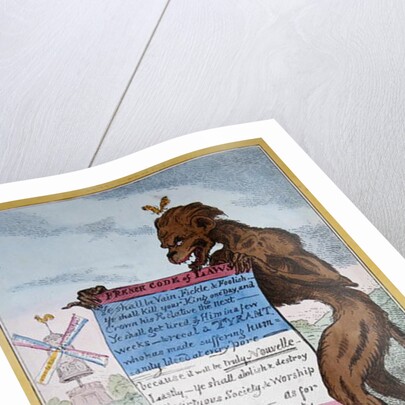 FRENCH CODE of LAWS
Ye shall be Vain, Fickle & Foolish
Ye shall Kill your King one Day, and
Crown his Relative the next
Ye shall get tired of Him in a few
weeks — & recal a TYRANT
who has made suffering hum-
anity bleed at every pore
because it will be truly Nouvelle
Lastly — Ye shall abolish & destroy
Virtuous Society & Worship
as for